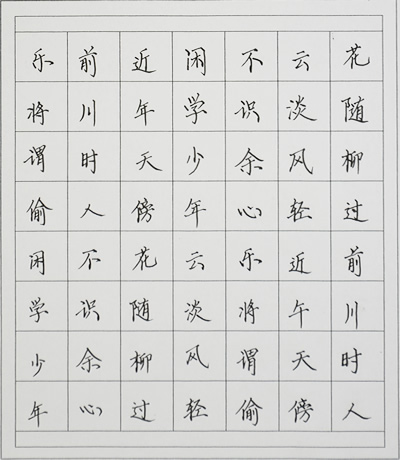 花随柳过前川时人
云淡风轻近午天傍
不识余心乐将谓偷
闲学少年云淡风轻
近年天傍花随柳过
前川时人不识余心
乐将谓偷闲学少年